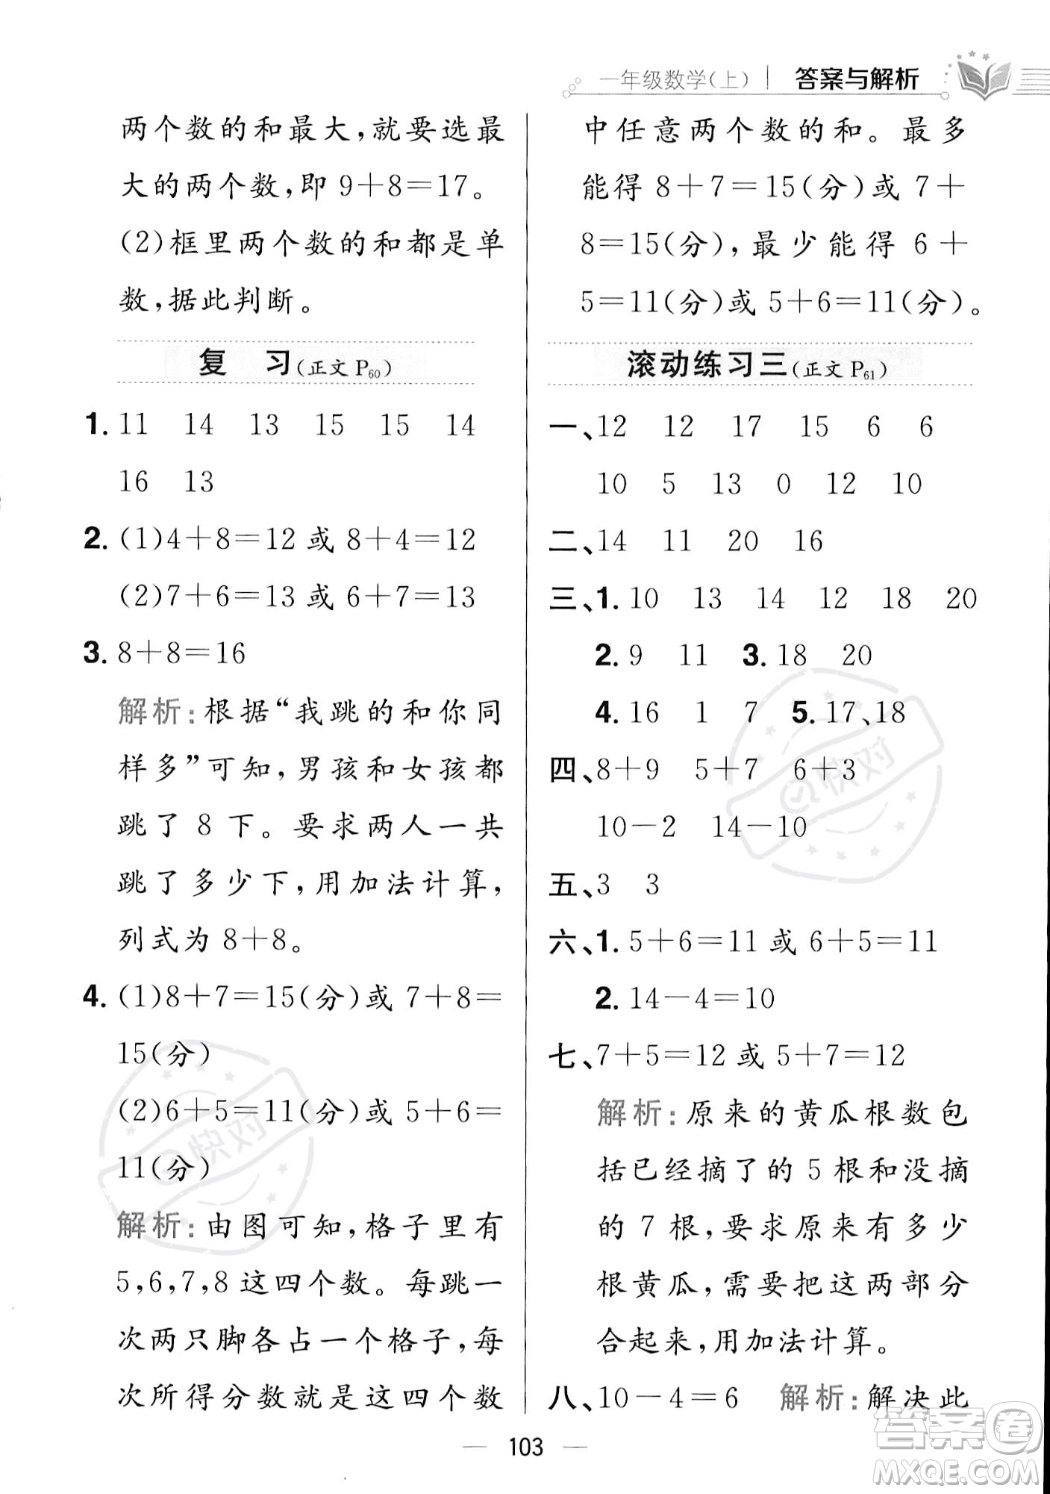 一年级数学(上) 答案与解析
两个数的和最大,就要选最
大的两个数,即 9+8=17。
(2)框里两个数的和都是单
数,据此判断。
复 习(正文 P60)
1. 11 14 13 15 15 14
16 13
2. (1)4+8=12 或 8+4=12
(2)7+6=13 或 6+7=13
3. 8+8=16
解析:根据“我跳的和你同
样多”可知,男孩和女孩都
跳了 8 下。要求两人一共
跳了多少下,用加法计算,
列式为 8+8。
4. (1)8+7=15(分)或 7+8=
15(分)
(2)6+5=11(分)或 5+6=
11(分)
解析:由图可知,格子里有
5,6,7,8 这四个数。每跳一
次两只脚各占一个格子,每
次所得分数就是这四个数
中任意两个数的和。最多
能得 8+7=15(分)或 7+
8=15(分),最少能得 6+
5=11(分)或 5+6=11(分)。
滚动练习三(正文 P61)
一、12 12 17 15 6 6
10 5 13 0 12 10
二、14 11 20 16
三、1. 10 13 14 12 18 20
2. 9 11 3. 18 20
4. 16 1 7 5. 17、18
四、8+9 5+7 6+3
10-2 14-10
五、3 3
六、1. 5+6=11 或 6+5=11
2. 14-4=10
七、7+5=12 或 5+7=12
解析:原来的黄瓜根数包
括已经摘了的 5 根和没摘
的 7 根,要求原来有多少
根黄瓜,需要把这两部分
合起来,用加法计算。
八、10-4=6 解析:解决此
103
快对
快对
答案卷
MXQE.COM